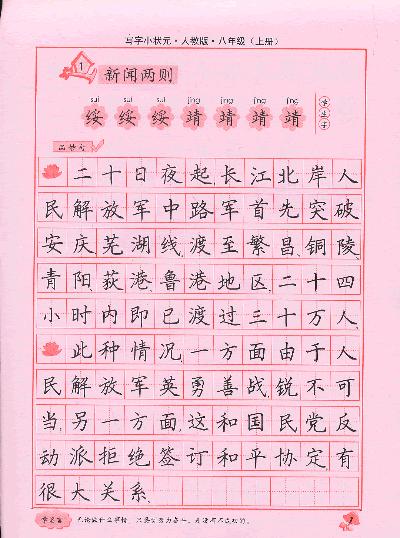 写字小状元·人教版·八年级（上册）
1 新闻两则
suí suí suí jìng jìng jìng jìng
绥 绥 绥 靖 靖 靖 靖
学生字
二十日夜起,长江北岸人
民解放军中路军首先突破
安庆、芜湖线,渡至繁昌、铜陵、
青阳、荻港、鲁港地区,二十四
小时内即已渡过三十万人。
此种情况,一方面由于人
民解放军英勇善战,锐不可
当;另一方面,这和国民党反
动派拒绝签订和平协定,有
很大关系。
学名言
1